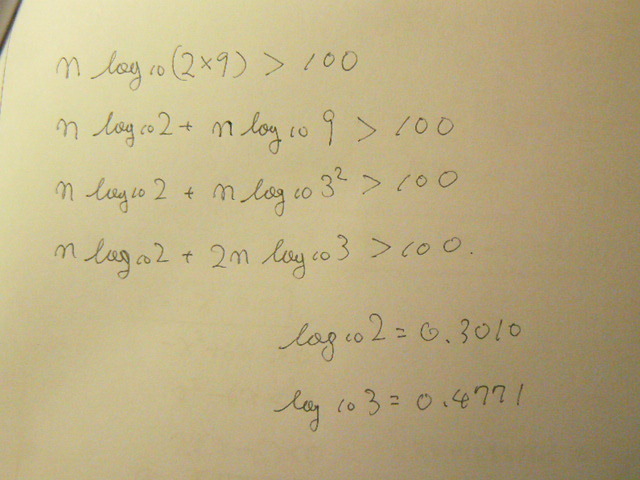 n log₁₀(2×9) > 100
n log₁₀2 + n log₁₀9 > 100
n log₁₀2 + n log₁₀3² > 100
n log₁₀2 + 2n log₁₀3 > 100.
log₁₀2 = 0.3010
log₁₀3 = 0.4771